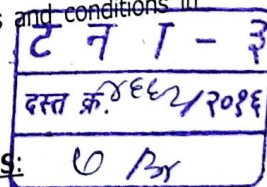 and conditions in
ट न T - ३
दस्त क्र. ४६६२/२०१६
S: ७